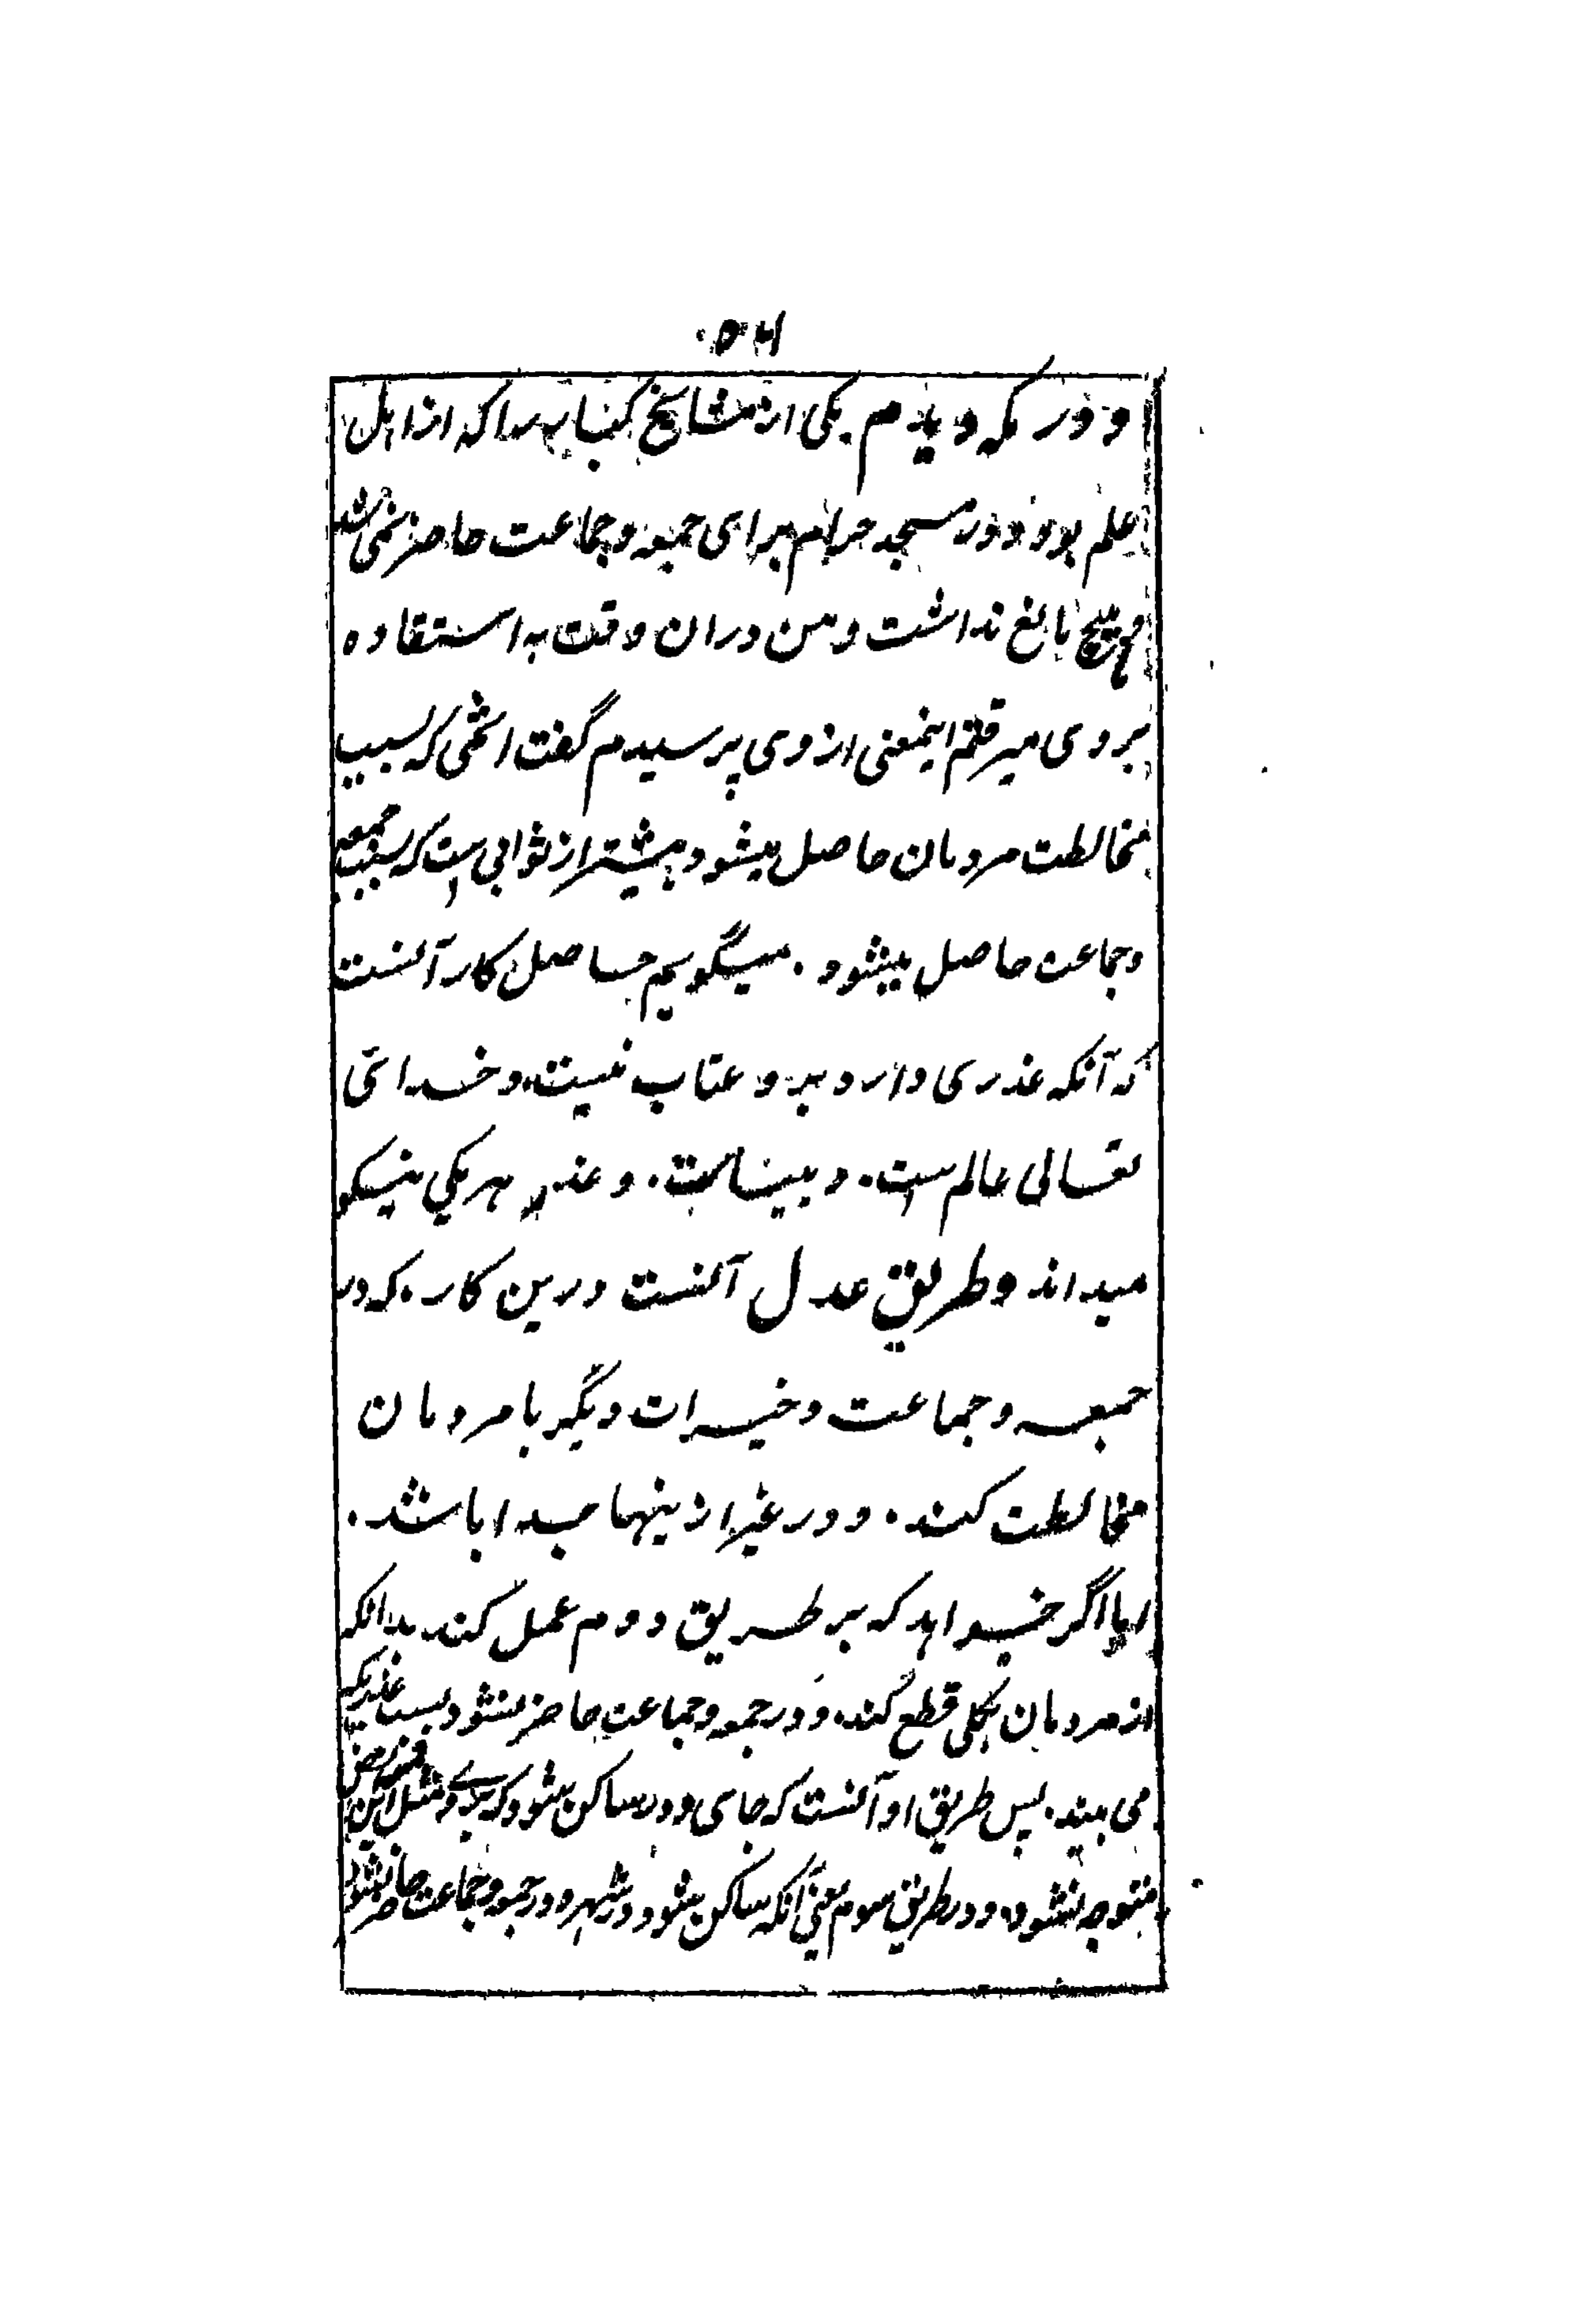 و در مکه دیدم یکی از مشایخ کبار را که از اهل
علم بود و در مسجد حرام برای جمعه و جماعت حاضر نمی شد
هیچ مانع نداشت و من دران وقت به استفاده
بروی میرفتم اینمعنی از وی پرسیدم گفت اثمی که بسبب
مخالطت مردمان حاصل میشود بیشتر از ثوابی است که بسبب جمعه
و جماعت حاصل میشود. میگویم حاصل کار آنست
که آنکه عذری دارد برو عتاب نیست، و خدائی
تعالی عالم است. و بیناست. و عذر هر یکی نیکو
میداند و طریق عدل آنست درین کار. که در
جمعه و جماعت و خیرات دیگر با مردمان
مخالطت کند. و در غیر ازینها جدا باشد.
اما اگر خواهد که بر طریق دوم عمل کند بدانکه
از مردمان بکلی قطع کند، و در جمعه و جماعت حاضر نشود بسبب عذریکه
می بیند. پس طریق او آنست که جای دور ساکن میشود که بروی مثل این فرض
متوجه نشود، و در طریق سوم یعنی آنکه ساکن میشود در شهر و در جمعه و جماعت حاضر نشود